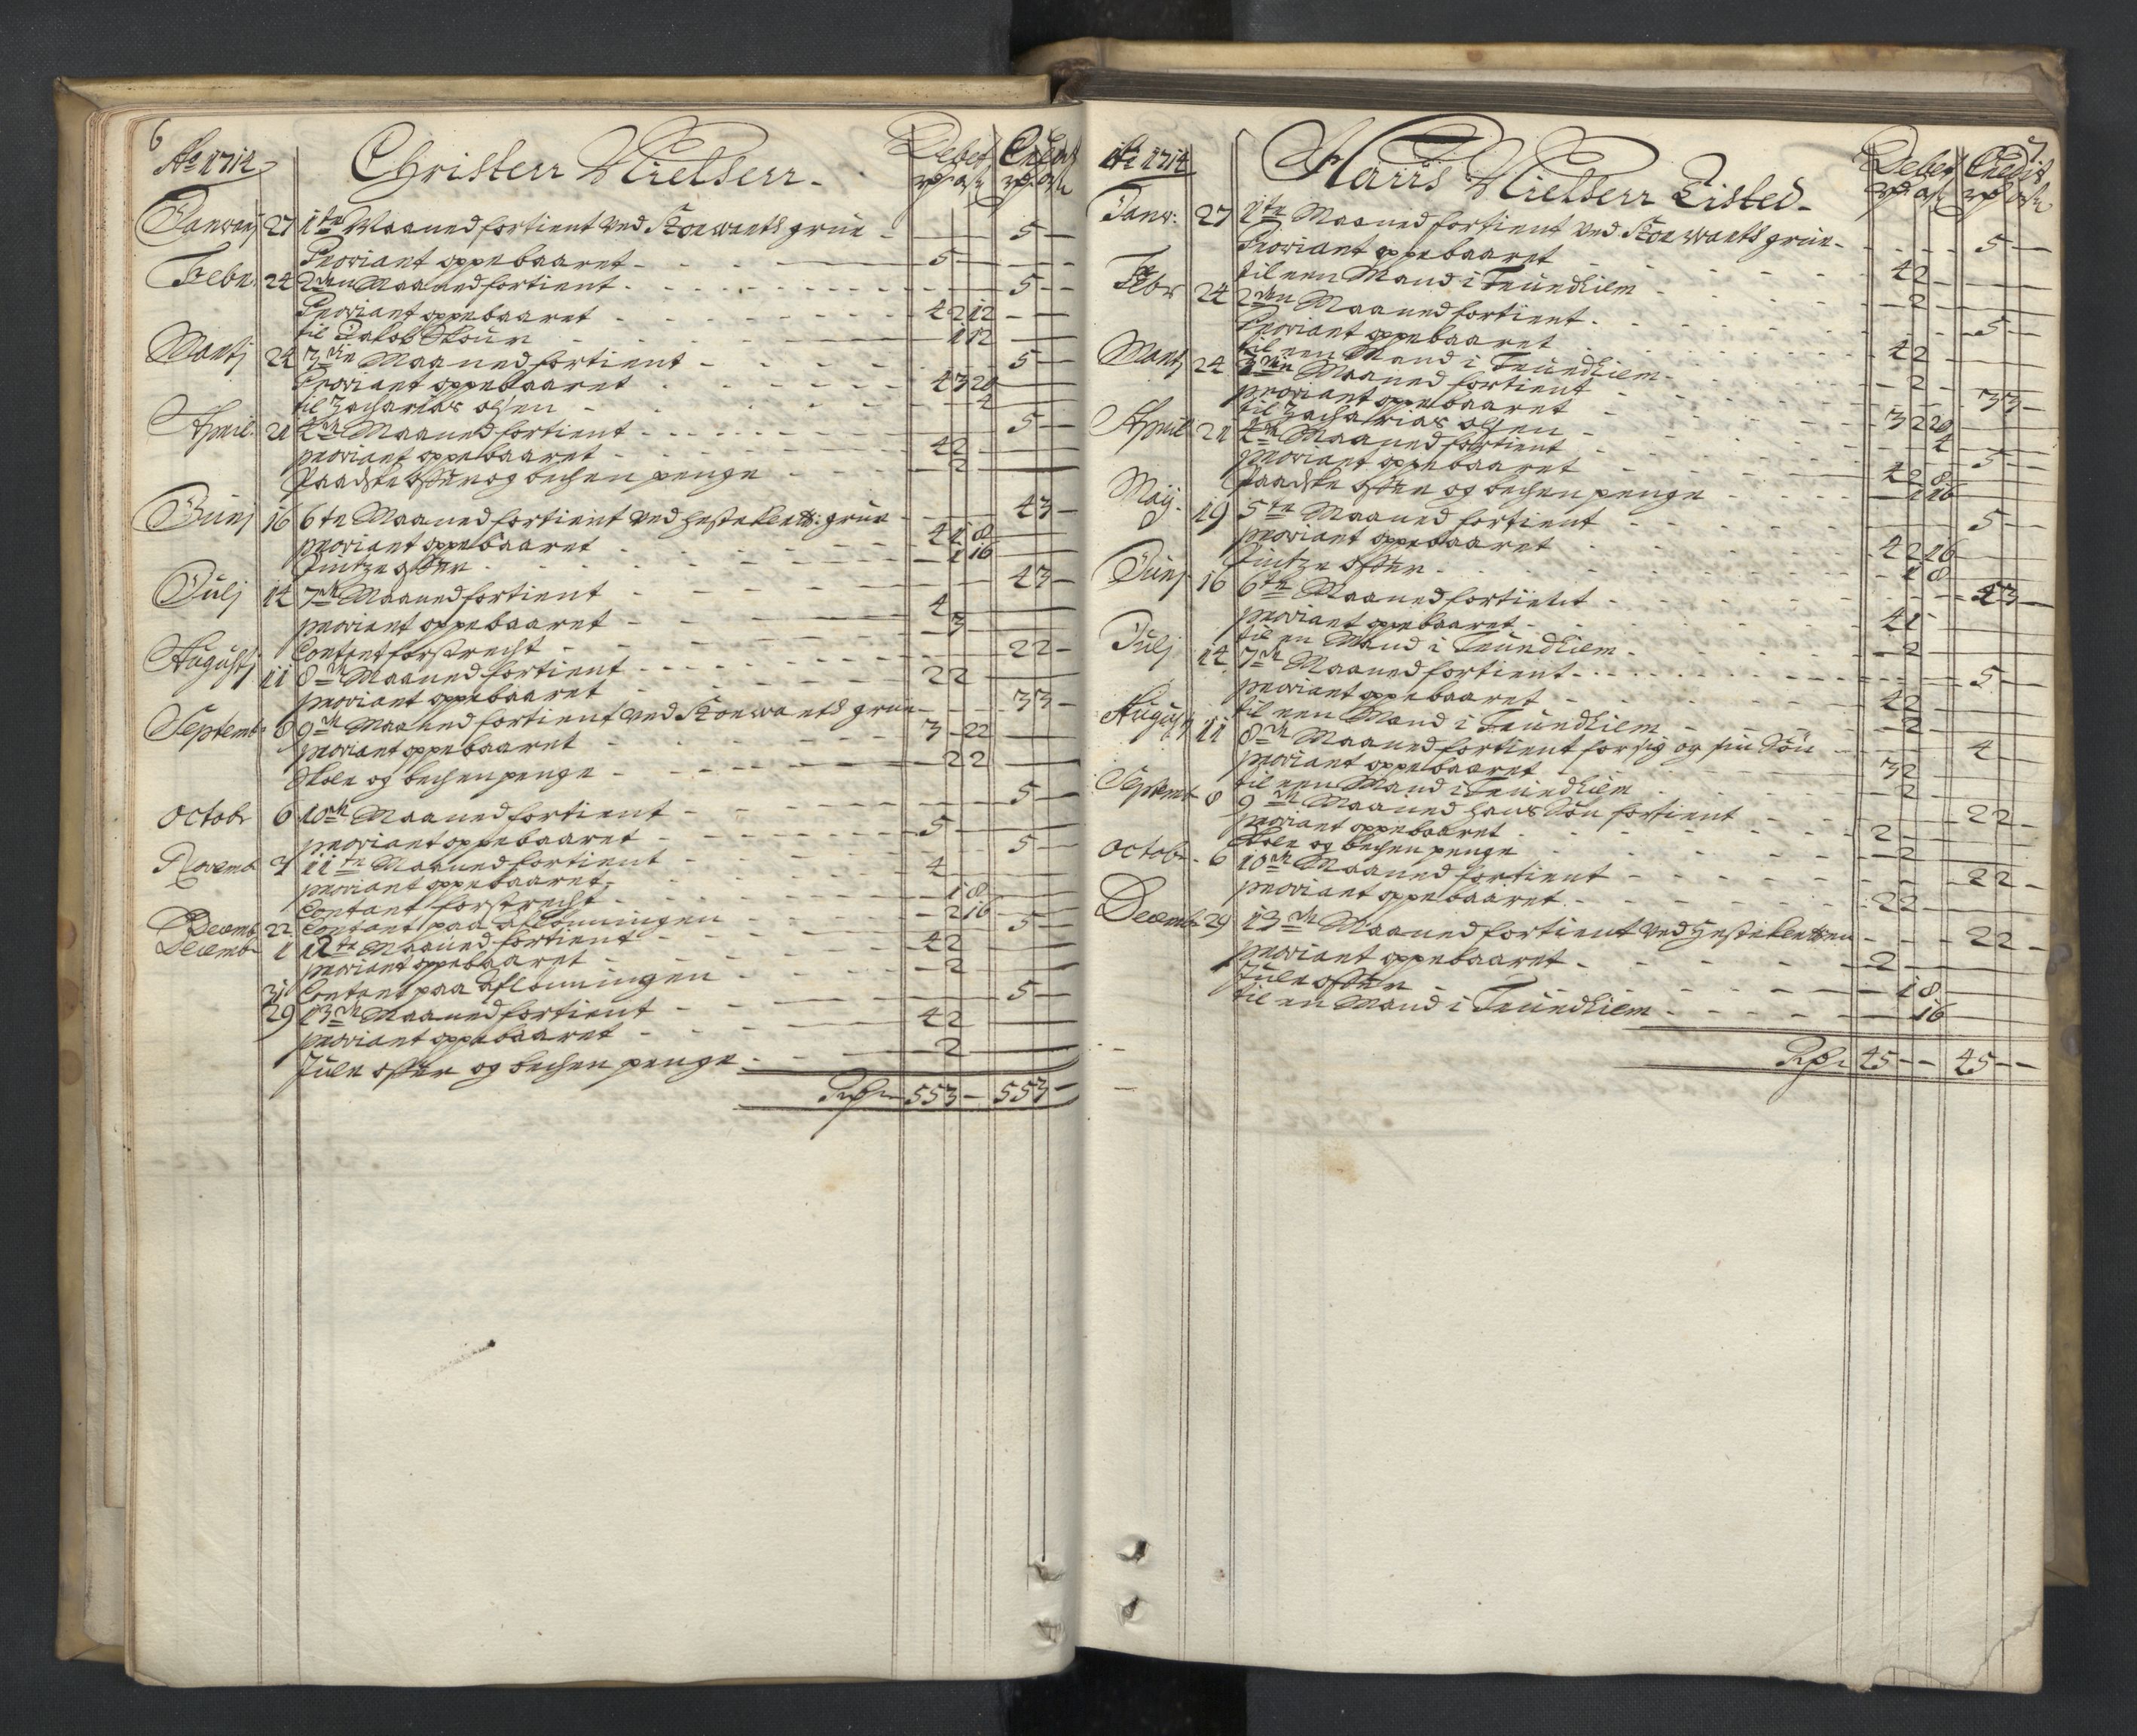 6
Ao 1714
Christen Nielsen
Debet Credit
rdr ort s rdr ort s
Januarj 27 1te Maaned fortient ved Storwarts grue - 5 -
Proviant oppebaaret - 5 -
Febr. 24 2den Maaned fortient - 5 -
Proviant oppebaaret - 4 2 12
til Jakob - 1 12
Martj 24 3die Maaned fortient - 5 -
Proviant oppebaaret - 4 3 20
til Zacharias olsen - 4
April. 21 4de Maaned fortient - 5 -
proviant oppebaaret - 4 2
Paaske offer og bechen penge - 2
Junj 16 6te Maaned fortient ved hestekletz: grue - 4 3 -
proviant oppebaaret - 4 1 8
Pintze offer - 1 16
Julj 14 7de Maaned fortient - 4 3 -
proviant oppebaaret - 4
Contant forstrecht - 3
Augustj 11 8de Maaned fortient - 2 2 -
proviant oppebaaret - 2 2
Septemb: 8 9de Maaned fortient ved Storwarts grue - 3 3 -
proviant oppebaaret - 3 - 22
Skole og bechen penge - 2 2
Octobr 6 10de Maaned fortient - 5 -
proviant oppebaaret - 5
Novemb 4 11te Maaned fortient - 5 -
proviant oppebaaret - 4
Contant forstrecht - 1 8
Decemb 22 Contant paa aflønningen - 2 16
Decembr 1 12te Maaned fortient - 5 -
proviant oppebaaret - 4 2
31 Contant paa aflønningen - 2
29 13de Maaned fortient - 5 -
proviant oppebaaret - 4 2
Jule offer og bechen penge - 2
Rdr 55 3 - 55 3 -
7
Ao 1714
Hans Nielsen Listed
Debet Credit
rdr ort s rdr ort s
Janu: 27 1te Maaned fortient ved Storwarts grue - 5 -
Proviant oppebaaret - 4 2
til een Mand i Trundhiem - 2
Febr 24 2den Maaned fortient - 5 -
Proviant oppebaaret - 4 2
til een Mand i Trundhiem - 2 -
Martj 24 3die Maaned fortient - 3 3 -
proviant oppebaaret - 3 2 20
til Zacharias olsen - 4
April 21 4de Maaned fortient - 5 -
proviant oppebaaret - 4 2 8
Paaske offer og bechen penge - 1 16
Maij. 19 5te Maaned fortient - 5 -
proviant oppebaaret - 4 2 16
Pintze offer - 1 8
Junj 16 6te Maaned fortient - 4 3 -
proviant oppebaaret - 4 1
til en Mand i Trundhiem - 2
Julj 14 7de Maaned fortient - 5 -
proviant oppebaaret - 4 2
til een Mand i Trundhiem - 2
Augustj 11 8de Maaned fortient for sig og sin Søn - 4
proviant oppebaaret - 3 2
til een Mand i Trundhiem - 2
Septemb 8 9de Maaned hans Søn fortient - 2 2 -
proviant oppebaaret - 2 -
Skole og bechen penge - 2
Octobr. 6 10de Maaned fortient - 2 2 -
proviant oppebaaret - 2 2
Decemb. 29 13de Maaned fortient ved Hestekletten - 2 2 -
proviant oppebaaret - 2
Jule offer - 1 8
til en Mand i Trundhiem - 16
Rdr 45 - - 45 - -